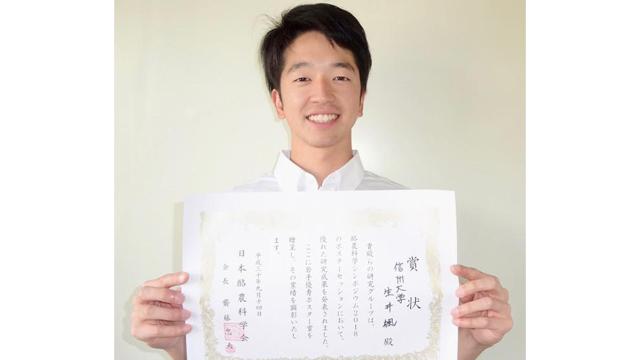 賞状
信州大学
生井楓 殿
貴殿らの研究グループは、
酪農科学シンポジウム2018
のポスターセッションにおいて、
優れた研究成果を発表されました。
ここに若手優秀ポスター賞を
贈呈し、その業績を顕彰いたし
ます。
平成三十年九月十四日
日本酪農科学会
会長 齋藤忠夫